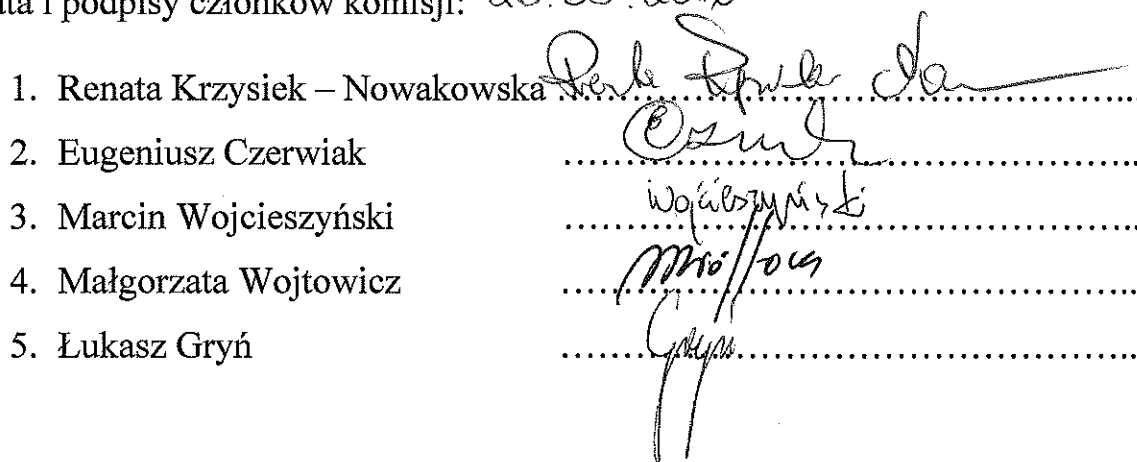 ta i podpisy członków komisji:
1. Renata Krzysiek – Nowakowska ..............................
2. Eugeniusz Czerwiak ..............................
3. Marcin Wojcieszyński Wojcieszyński ..............................
4. Małgorzata Wojtowicz ..............................
5. Łukasz Gryń Gryń ..............................